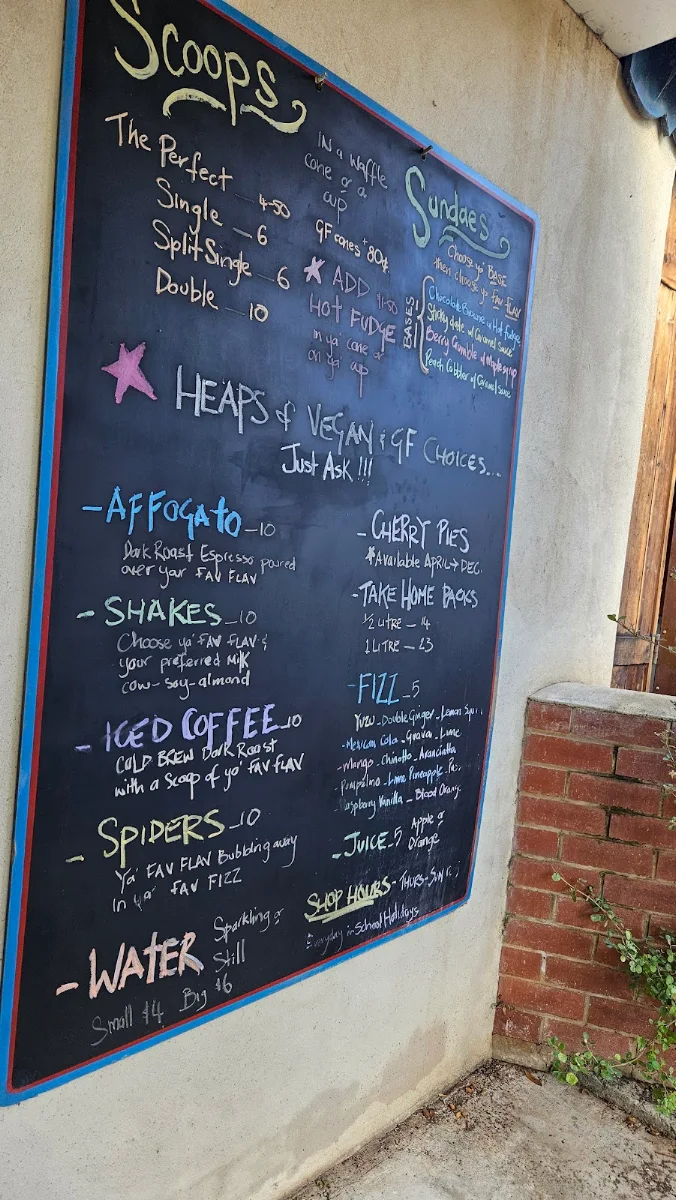 Scoops
The Perfect
Single - 4.50
Split Single - 6
Double - 10
in a waffle
cone or a
cup
GF cones + 80¢
ADD
HOT FUDGE
in ya cone or
on ya cup
Sundaes
Choose yo' BASE
then choose yo' FAV FLAV
BASES
Chocolate Brownie w Hot fudge
Sticky date w Caramel sauce
Berry Crumble w Maple syrup
Peach Cobbler w Caramel sauce
HEAPS of VEGAN & GF CHOICES...
Just Ask !!!
- AFFOGATO - 10
Dark Roast Espresso poured
over your FAV FLAV
- SHAKES - 10
Choose ya' FAV FLAV &
your preferred Milk
cow - soy - almond
- ICED COFFEE - 10
COLD BREW Dark Roast
with a scoop of yo' FAV FLAV
- SPIDERS - 10
Ya' FAV FLAV Bubbling away
in ya' FAV FIZZ
- WATER Sparkling or
Still
Small $4 Big $6
- CHERRY PIES
*Available APRIL → DEC.
- TAKE HOME PACKS
½ LITRE - 14
1 LITRE - 23
- FIZZ - 5
Yuzu - Double Ginger - Lemon
- Mexican Cola - Guava - Lime
- Mango - Chinotto - Aranciatta
- Pompelmo - Lime Pineapple
Raspberry Vanilla - Blood Orange
- JUICE - 5 Apple or
Orange
SHOP HOURS - THURS - SUN
Everyday in School Holidays